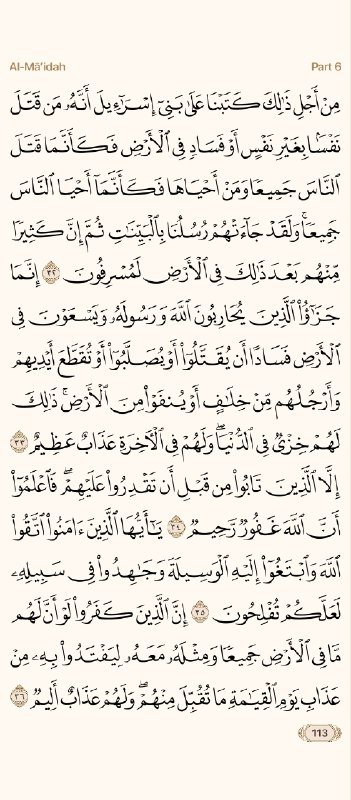 Al-Mā'idah
Part 6
مِنْ أَجْلِ ذَٰلِكَ كَتَبْنَا عَلَىٰ بَنِىٓ إِسْرَٰٓءِيلَ أَنَّهُۥ مَن قَتَلَ
نَفْسًۢا بِغَيْرِ نَفْسٍ أَوْ فَسَادٍ فِى ٱلْأَرْضِ فَكَأَنَّمَا قَتَلَ
ٱلنَّاسَ جَمِيعًا وَمَنْ أَحْيَاهَا فَكَأَنَّمَآ أَحْيَا ٱلنَّاسَ
جَمِيعًا ۚ وَلَقَدْ جَآءَتْهُمْ رُسُلُنَا بِٱلْبَيِّنَٰتِ ثُمَّ إِنَّ كَثِيرًا
مِّنْهُم بَعْدَ ذَٰلِكَ فِى ٱلْأَرْضِ لَمُسْرِفُونَ ٣٢ إِنَّمَا
جَزَٰٓؤُا۟ ٱلَّذِينَ يُحَارِبُونَ ٱللَّهَ وَرَسُولَهُۥ وَيَسْعَوْنَ فِى
ٱلْأَرْضِ فَسَادًا أَن يُقَتَّلُوٓا۟ أَوْ يُصَلَّبُوٓا۟ أَوْ تُقَطَّعَ أَيْدِيهِمْ
وَأَرْجُلُهُم مِّنْ خِلَٰفٍ أَوْ يُنفَوْا۟ مِنَ ٱلْأَرْضِ ۚ ذَٰلِكَ
لَهُمْ خِزْىٌ فِى ٱلدُّنْيَا ۖ وَلَهُمْ فِى ٱلْءَاخِرَةِ عَذَابٌ عَظِيمٌ ٣٣
إِلَّا ٱلَّذِينَ تَابُوا۟ مِن قَبْلِ أَن تَقْدِرُوا۟ عَلَيْهِمْ ۖ فَٱعْلَمُوٓا۟
أَنَّ ٱللَّهَ غَفُورٌ رَّحِيمٌ ٣٤ يَٰٓأَيُّهَا ٱلَّذِينَ ءَامَنُوا۟ ٱتَّقُوا۟
ٱللَّهَ وَٱبْتَغُوٓا۟ إِلَيْهِ ٱلْوَسِيلَةَ وَجَٰهِدُوا۟ فِى سَبِيلِهِۦ
لَعَلَّكُمْ تُفْلِحُونَ ٣٥ إِنَّ ٱلَّذِينَ كَفَرُوا۟ لَوْ أَنَّ لَهُم
مَّا فِى ٱلْأَرْضِ جَمِيعًا وَمِثْلَهُۥ مَعَهُۥ لِيَفْتَدُوا۟ بِهِۦ مِنْ
عَذَابِ يَوْمِ ٱلْقِيَٰمَةِ مَا تُقُبِّلَ مِنْهُمْ ۖ وَلَهُمْ عَذَابٌ أَلِيمٌ ٣٦
113